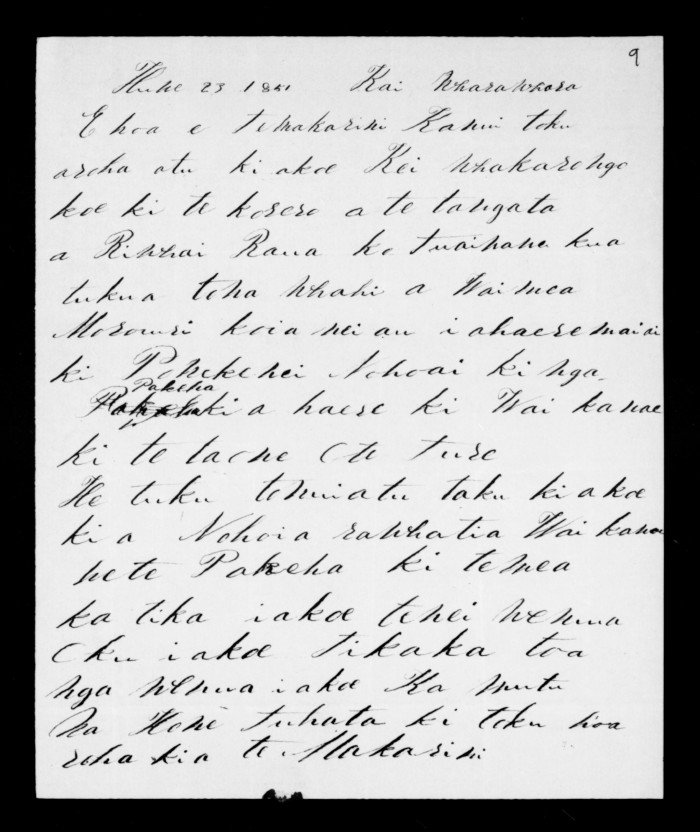 9
Hune 23 1851 Kai Wharawhara
E hoa e temakarini Kanui toku
aroha atu ki akoe Kei whakarongo
koe ki te korero a te tangata
a Riwhai Raua ko Tuainane kua
tukua tona whahi a Wai mea
koia nei au i ahaere mai ai
ki Ponekenei Nohoai ki nga
Pakeha
kia haere ki Wai kanae
ki te taone O te Ture
He tuku tonuiatu taku ki akoe
kia Nohoia rawhatia Wai kanae
nete Pakeha ki temea
ka tika iakoe tenei wenua
Oku iakoe Tikaka toa
nga wenua iakoe Ka mutu
Na Hone Tuhata ki toku hoa
roha kia te Makarini